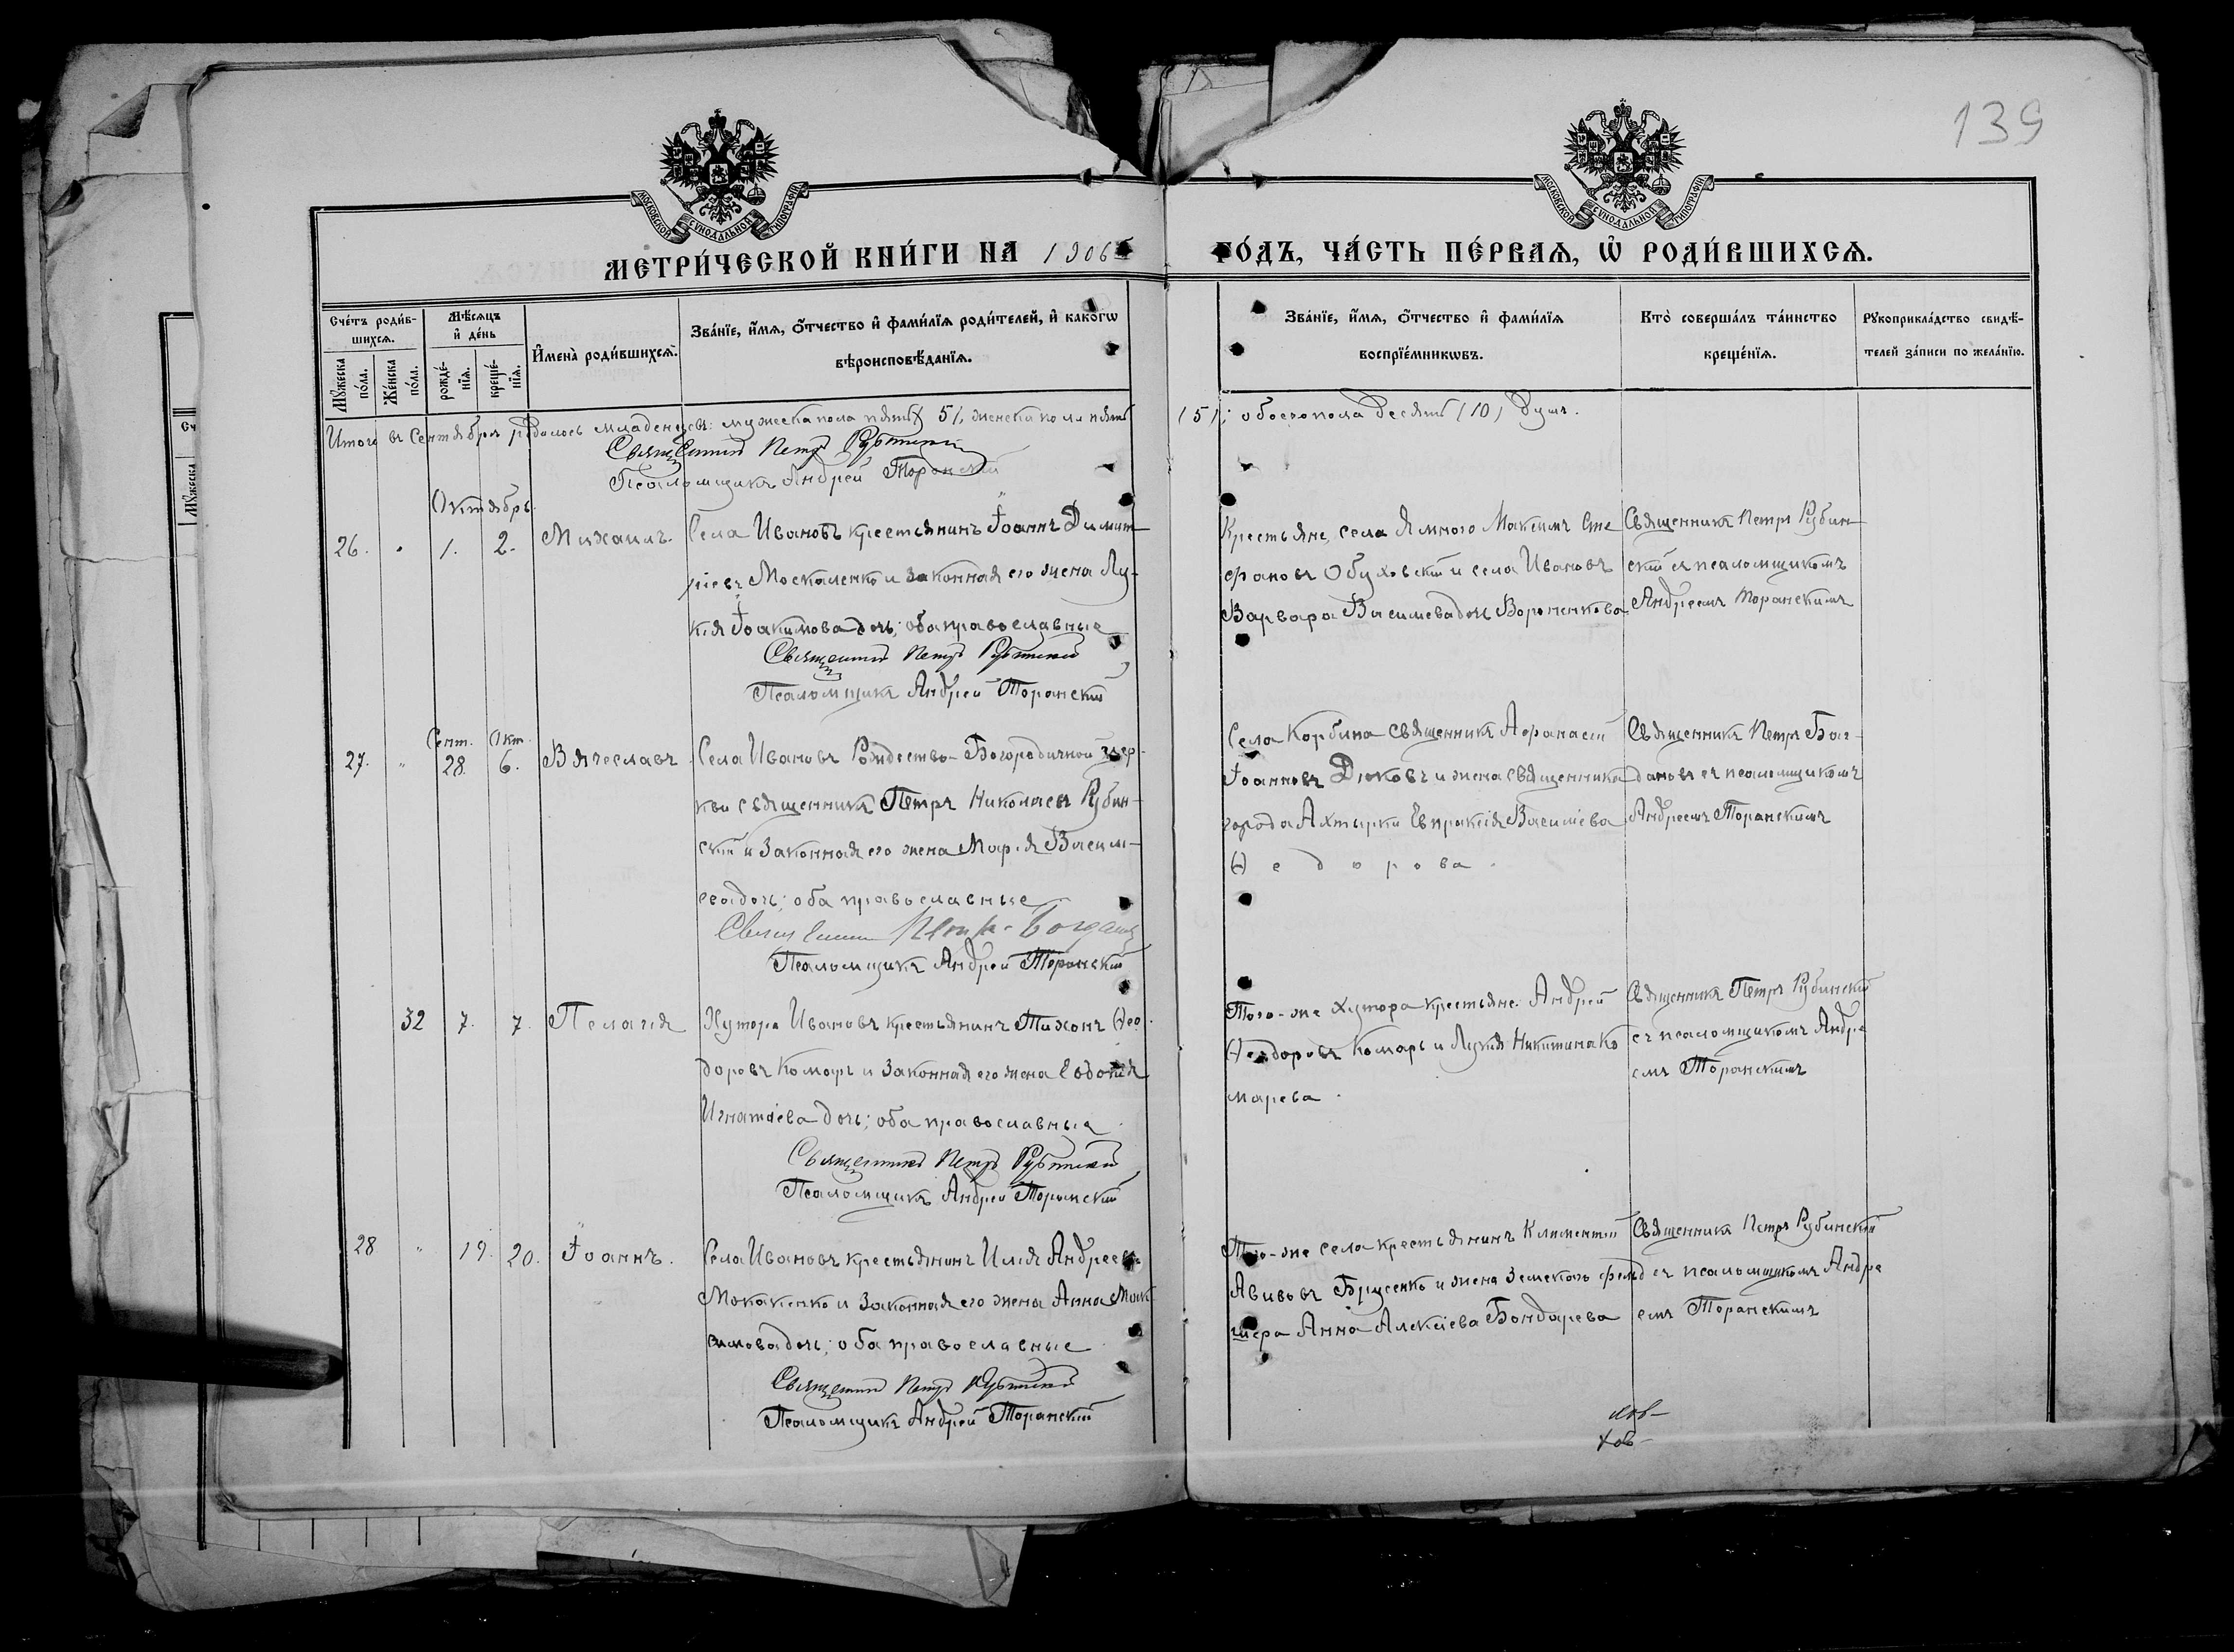 139
МОСКОВСКОЙ СѴНОДАЛЬНОЙ ТИПОГРАФІИ
МОСКОВСКОЙ СѴНОДАЛЬНОЙ ТИПОГРАФІИ
МЕТРИ́ЧЕСКОЙ КНИ́ГИ НА 1906 ГО́ДЪ, ЧА́СТЬ ПЕ́РВАѦ, Ѡ҆ РОДИ́ВШИХСѦ.
Сче́тъ роди́в-
шихсѧ.
Мѣ́сѧцъ
и҆ де́нь
Мꙋ́жеска
по́ла.
Же́нска
по́ла.
рожде́-
нїѧ.
креще́-
нїѧ.
И҆мена̀ роди́вшихсѧ.
Зва́нїе, и҆́мѧ, ѻ҆́тчество и҆ фами́лїѧ роди́телей, и҆ како́гѡ
вѣроисповѣ́данїѧ.
Зва́нїе, и҆́мѧ, ѻ҆́тчество и҆ фами́лїѧ
воспрїе́мникѡвъ.
Кто̀ соверша́лъ та́инство
креще́нїѧ.
Рꙋкоприкла́дство свидѣ́-
телей за́писи по жела́нїю.
Итого въ Сентябрѣ родилось младенцевъ: мужеска пола пять (5), женска пола пять (5); обоего пола десять (10) душъ.
Священникъ Петръ Рубинскій
Псаломщикъ Андрей Торанскій
Октябрь.
26. " 1. 2. Михаилъ.
Села Ивановъ крестьянинъ Іоаннъ Димит-
ріевъ Москаленко и законная его жена Лу-
кія Іоакимова дочь; оба православные
Священникъ Петръ Рубинскій
Псаломщикъ Андрей Торанскій
Крестьяне, села Ямного Максимъ Сте
фановъ Обуховскій и села Ивановъ
Варвара Васильева дочь Вороненкова
Священникъ Петръ Рубин-
скій съ псаломщикомъ
Андреемъ Торанскимъ
Сент. Окт.
27. " 28. 6. Вячеславъ
Села Ивановъ Рождество-Богородичной цер-
кви священникъ Петръ Николаевъ Рубин-
скій и законная его жена Марія Василь-
ева дочь; оба православные
Священникъ Петръ Богданов
Псаломщикъ Андрей Торанскій
Села Корбина священникъ Аѳанасій
Іоанновъ Дюковъ и жена священника
города Ахтырки Евпраксія Васильева
Ѳедорова.
Священникъ Петръ Бог-
дановъ съ псаломщикомъ
Андреемъ Торанскимъ
32 7. 7. Пелагія
Хутора Ивановъ крестьянинъ Тихонъ Ѳео
доровъ Комарь и законная его жена Евдокія
Игнатіева дочь; оба православные.
Священникъ Петръ Рубинскій
Псаломщикъ Андрей Торанскій
Того-же хутора крестьяне: Андрей
Ѳеодоровъ Комарь и Лукія Никитина Ко
марева.
Священникъ Петръ Рубинскій
съ псаломщикомъ Андре
емъ Торанскимъ
28 " 19. 20. Іоаннъ.
Села Ивановъ крестьянинъ Илія Андреевъ
и законная его жена Анна Мак
симова дочь; оба православные
Священникъ Петръ Рубинскій
Псаломщикъ Андрей Торанскій
Того-же села крестьянинъ Климентій
Авивовъ Брусенко и жена земскаго фельд
шера Анна Алексіева Бондарева
Священникъ Петръ Рубинскій
съ псаломщикомъ Андре
емъ Торанскимъ